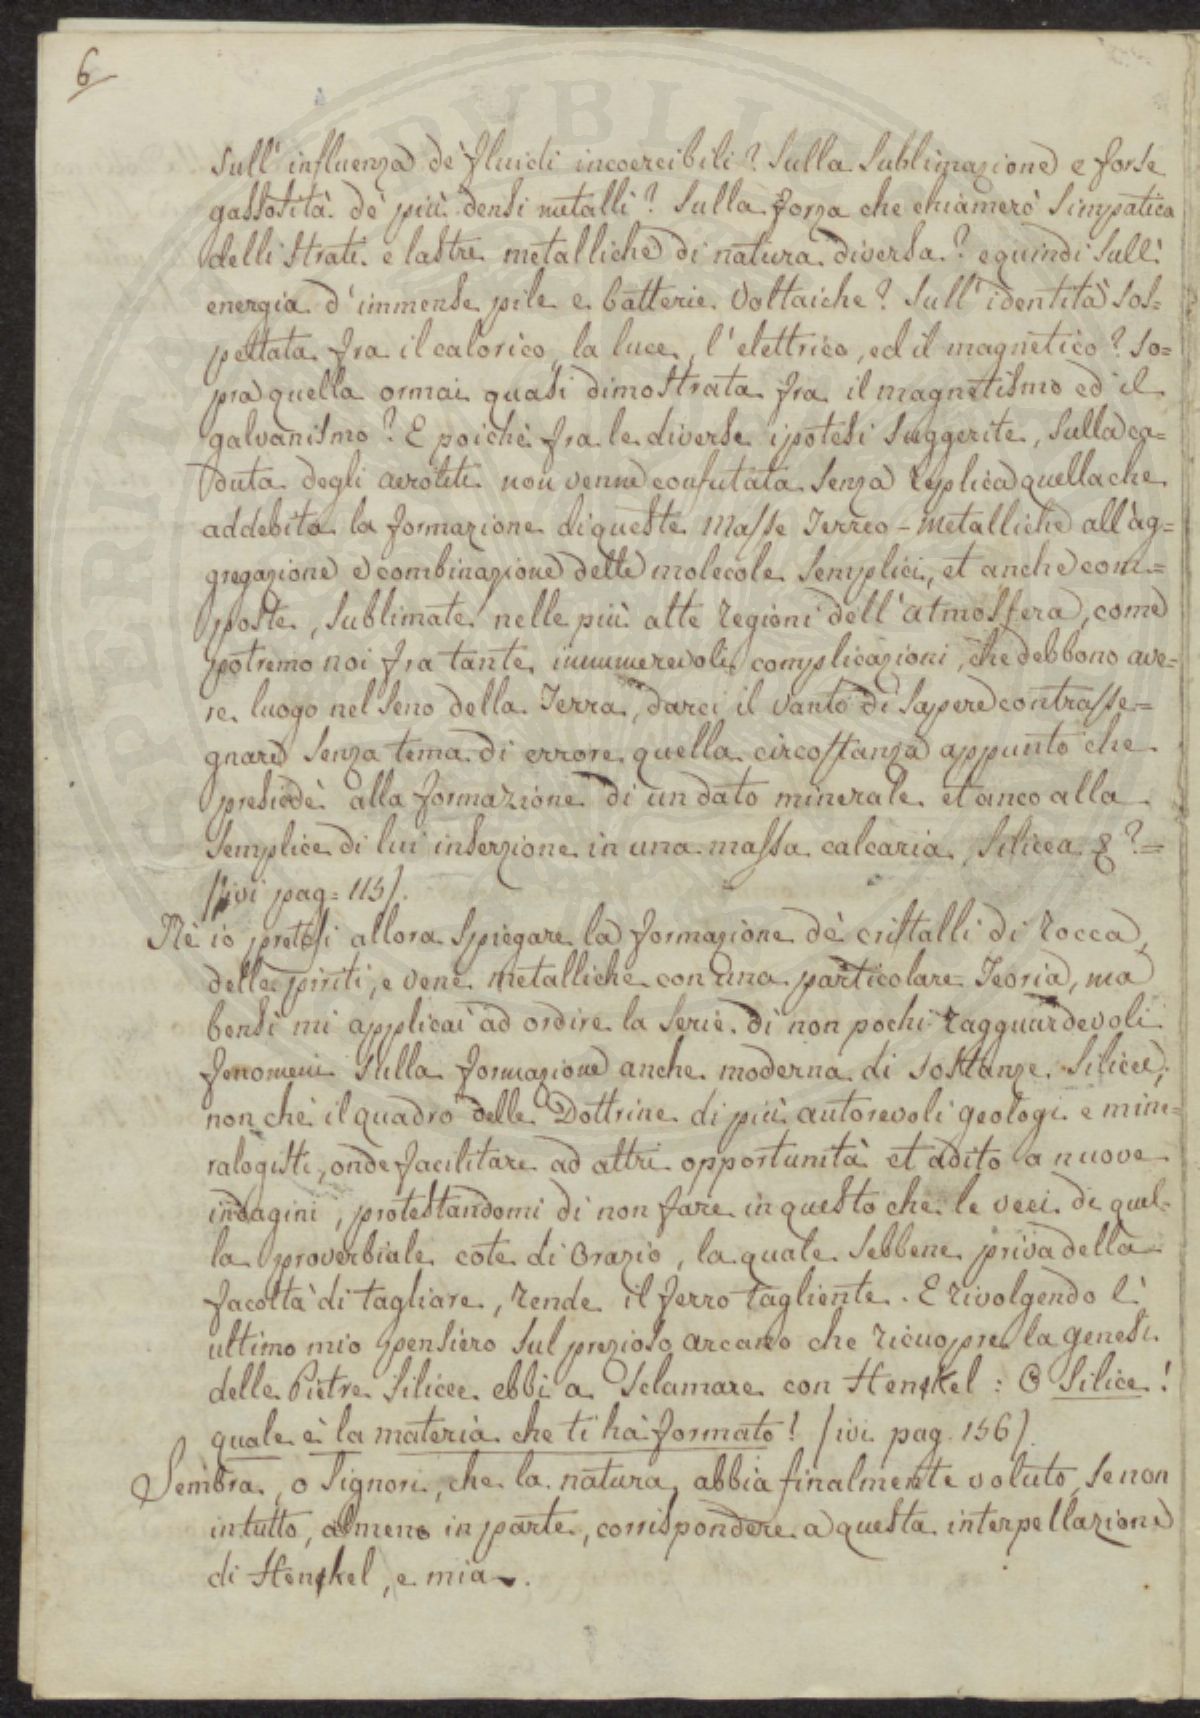 6
sull' influenza de' fluidi incoercibili? Sulla sublimazione e forse
gassosità de' più densi metalli? Sulla forza che chiamerò simpatica
delli strati e lastre metalliche di natura diversa? e quindi sull'
energia d'immense pile e batterie Voltaiche? Sull'identità sos=
pettata fra il calorico, la luce, l'elettrico, ed il magnetico? so=
pra quella ormai quasi dimostrata fra il magnetismo ed il
galvanismo? E poichè fra le diverse ipotesi suggerite, sulla ca=
duta degli aeroliti non venne confutata senza replica quella che
addebita la formazione di queste masse Terreo-metalliche all'ag=
gregazione e combinazione delle molecole semplici, et anche com=
poste, sublimate nelle più alte regioni dell'atmosfera, come
potremo noi fra tante innumerevoli complicazioni, che debbono ave=
re luogo nel seno della Terra, darci il vanto di sapere contrasse=
gnare senza tema di errore quella circostanza appunto che
presiedè alla formazione di un dato minerale et anco alla
semplice di lui inserzione in una massa calcaria, silicea &?=
(ivi pag= 115).
Nè io pretesi allora spiegare la formazione dè cristalli di rocca,
delle piriti, e vene metalliche con una particolare Teoria, ma
bensì mi applicai ad ordire la serie di non pochi ragguardevoli
fenomeni sulla formazione anche moderna di sostanze silicee,
non chè il quadro delle Dottrine di più autorevoli geologi e mine=
ralogisti, onde facilitare ad altri opportunità et adito a nuove
indagini, protestandomi di non fare in questo che le veci di quel=
la proverbiale cote di Orazio, la quale sebbene priva della
facoltà di tagliare, rende il ferro tagliente. E rivolgendo l'
ultimo mio pensiero sul prezioso arcano che ricuopre la genesi
delle Pietre silicee ebbi a sclamare con Henckel: O Silice!
quale è la materia che ti hà formato! (ivi pag. 156)
Sembra, o Signori, che la natura abbia finalmente voluto, se non
in tutto, almeno in parte, corrispondere a questa interpellazione
di Henckel, e mia.